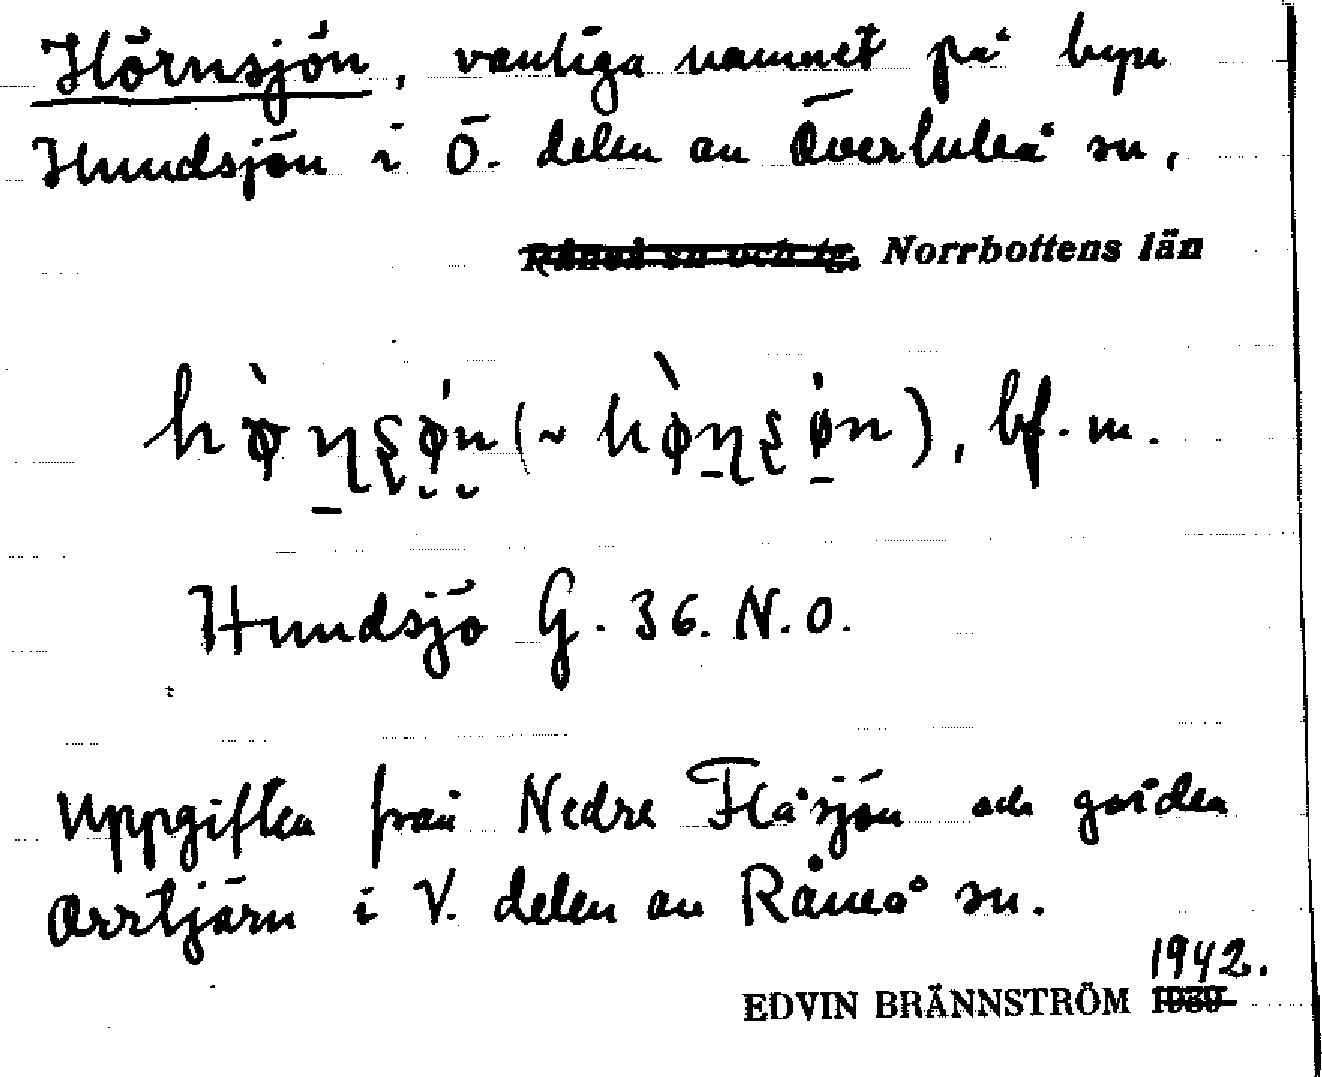 Hörnsjön, vanliga namnet på byn
Hundsjön i Ö. delen av Överluleå sn,
Råneå sn och tg. Norrbottens län
bf. m.
Hundsjö G. 36. N.O.
Uppgiften från Nedre Flåsjön och gården
Orrtjärn i V. delen av Råneå sn.
1942.
EDVIN BRÄNNSTRÖM 1939